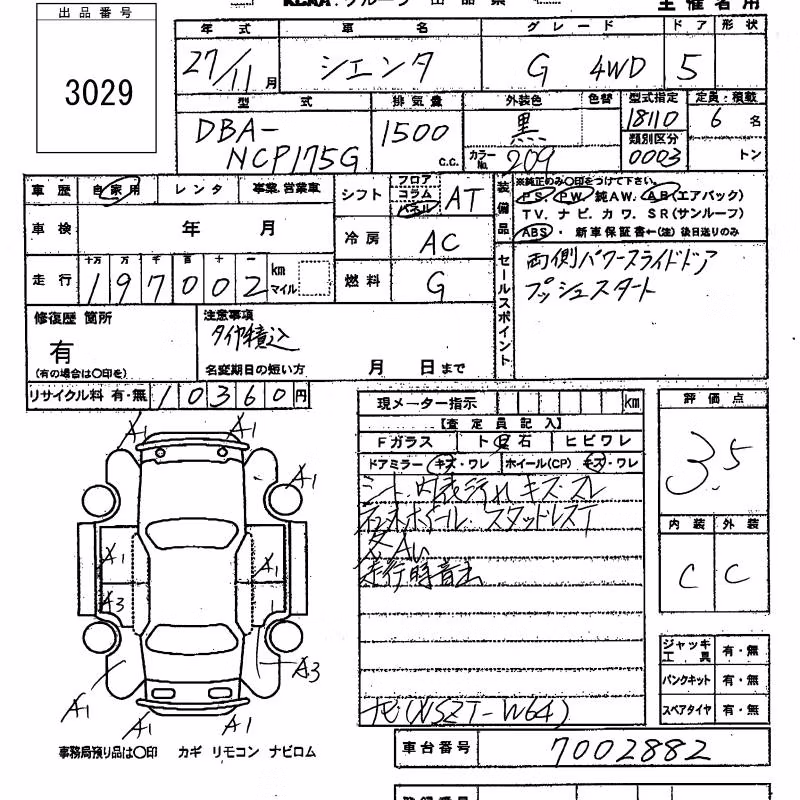 出品番号
3029
年式 車名 グレード ドア 形状
27/11月 シエンタ G 4WD 5
型式 排気量 外装色 色替 型式指定 定員・積載
DBA-NCP175G 1500 c.c. 黒 18110 6名
カラーNo. 209 類別区分 0003 トン
車歴 自家用 レンタ 事業.営業車
シフト フロア コラム パネル AT
装備品 ※純正のみ〇印をつけて下さい。
PS. PW. 純AW. AB(エアバック)
TV. ナビ. カワ. SR(サンルーフ)
ABS・ 新車保証書←(注)後日送りのみ
車検 年 月
冷房 AC
走行 十万 万 千 百 十 一
197002 km マイル
燃料 G
セールスポイント
両側パワースライドドア
プッシュスタート
修復歴 箇所
有
(有の場合は〇印を)
注意事項
タイヤ積込
名変期日の短い方 月 日まで
リサイクル料 有・無 10360円
現メーター指示 km
【査定員記入】
Fガラス ト 石 ヒビワレ
ドアミラー キズ・ワレ ホイール(CP) キズ・ワレ
シート、内装汚れ キズ スレ
ホイール. スタッドレスT
走行時音出
ナビ(NSZT-W64)
評価点
3.5
内装 外装
C C
ジャッキ工具 有・無
パンクキット 有・無
スペアタイヤ 有・無
A1 A1
A1
A1 A1
A3
A3
A1 A1 A1
事務局預り品は〇印 カギ リモコン ナビロム
車台番号 7002882